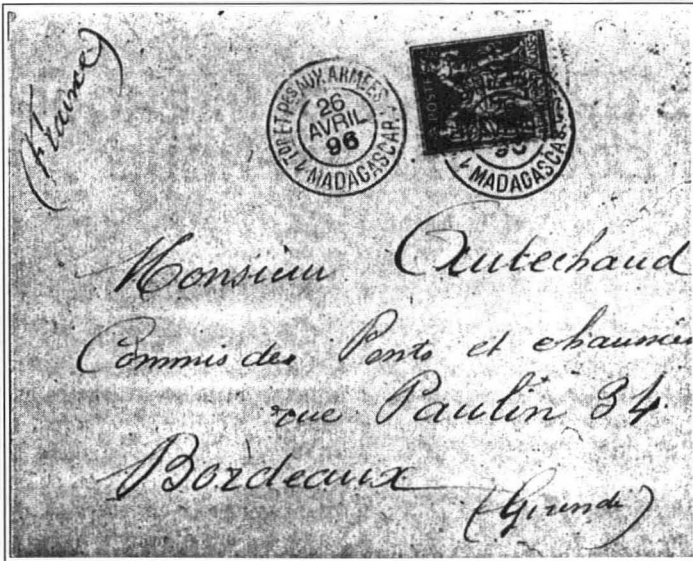 (France)
TOR ET POS AUX ARMEES
26
AVRIL
96
1 MADAGASCAR.
96
1 MADAGASCAR
Monsieur Autechaud
Commis des Ponts et chaussées
rue Paulin 34
Bordeaux
(Gironde)